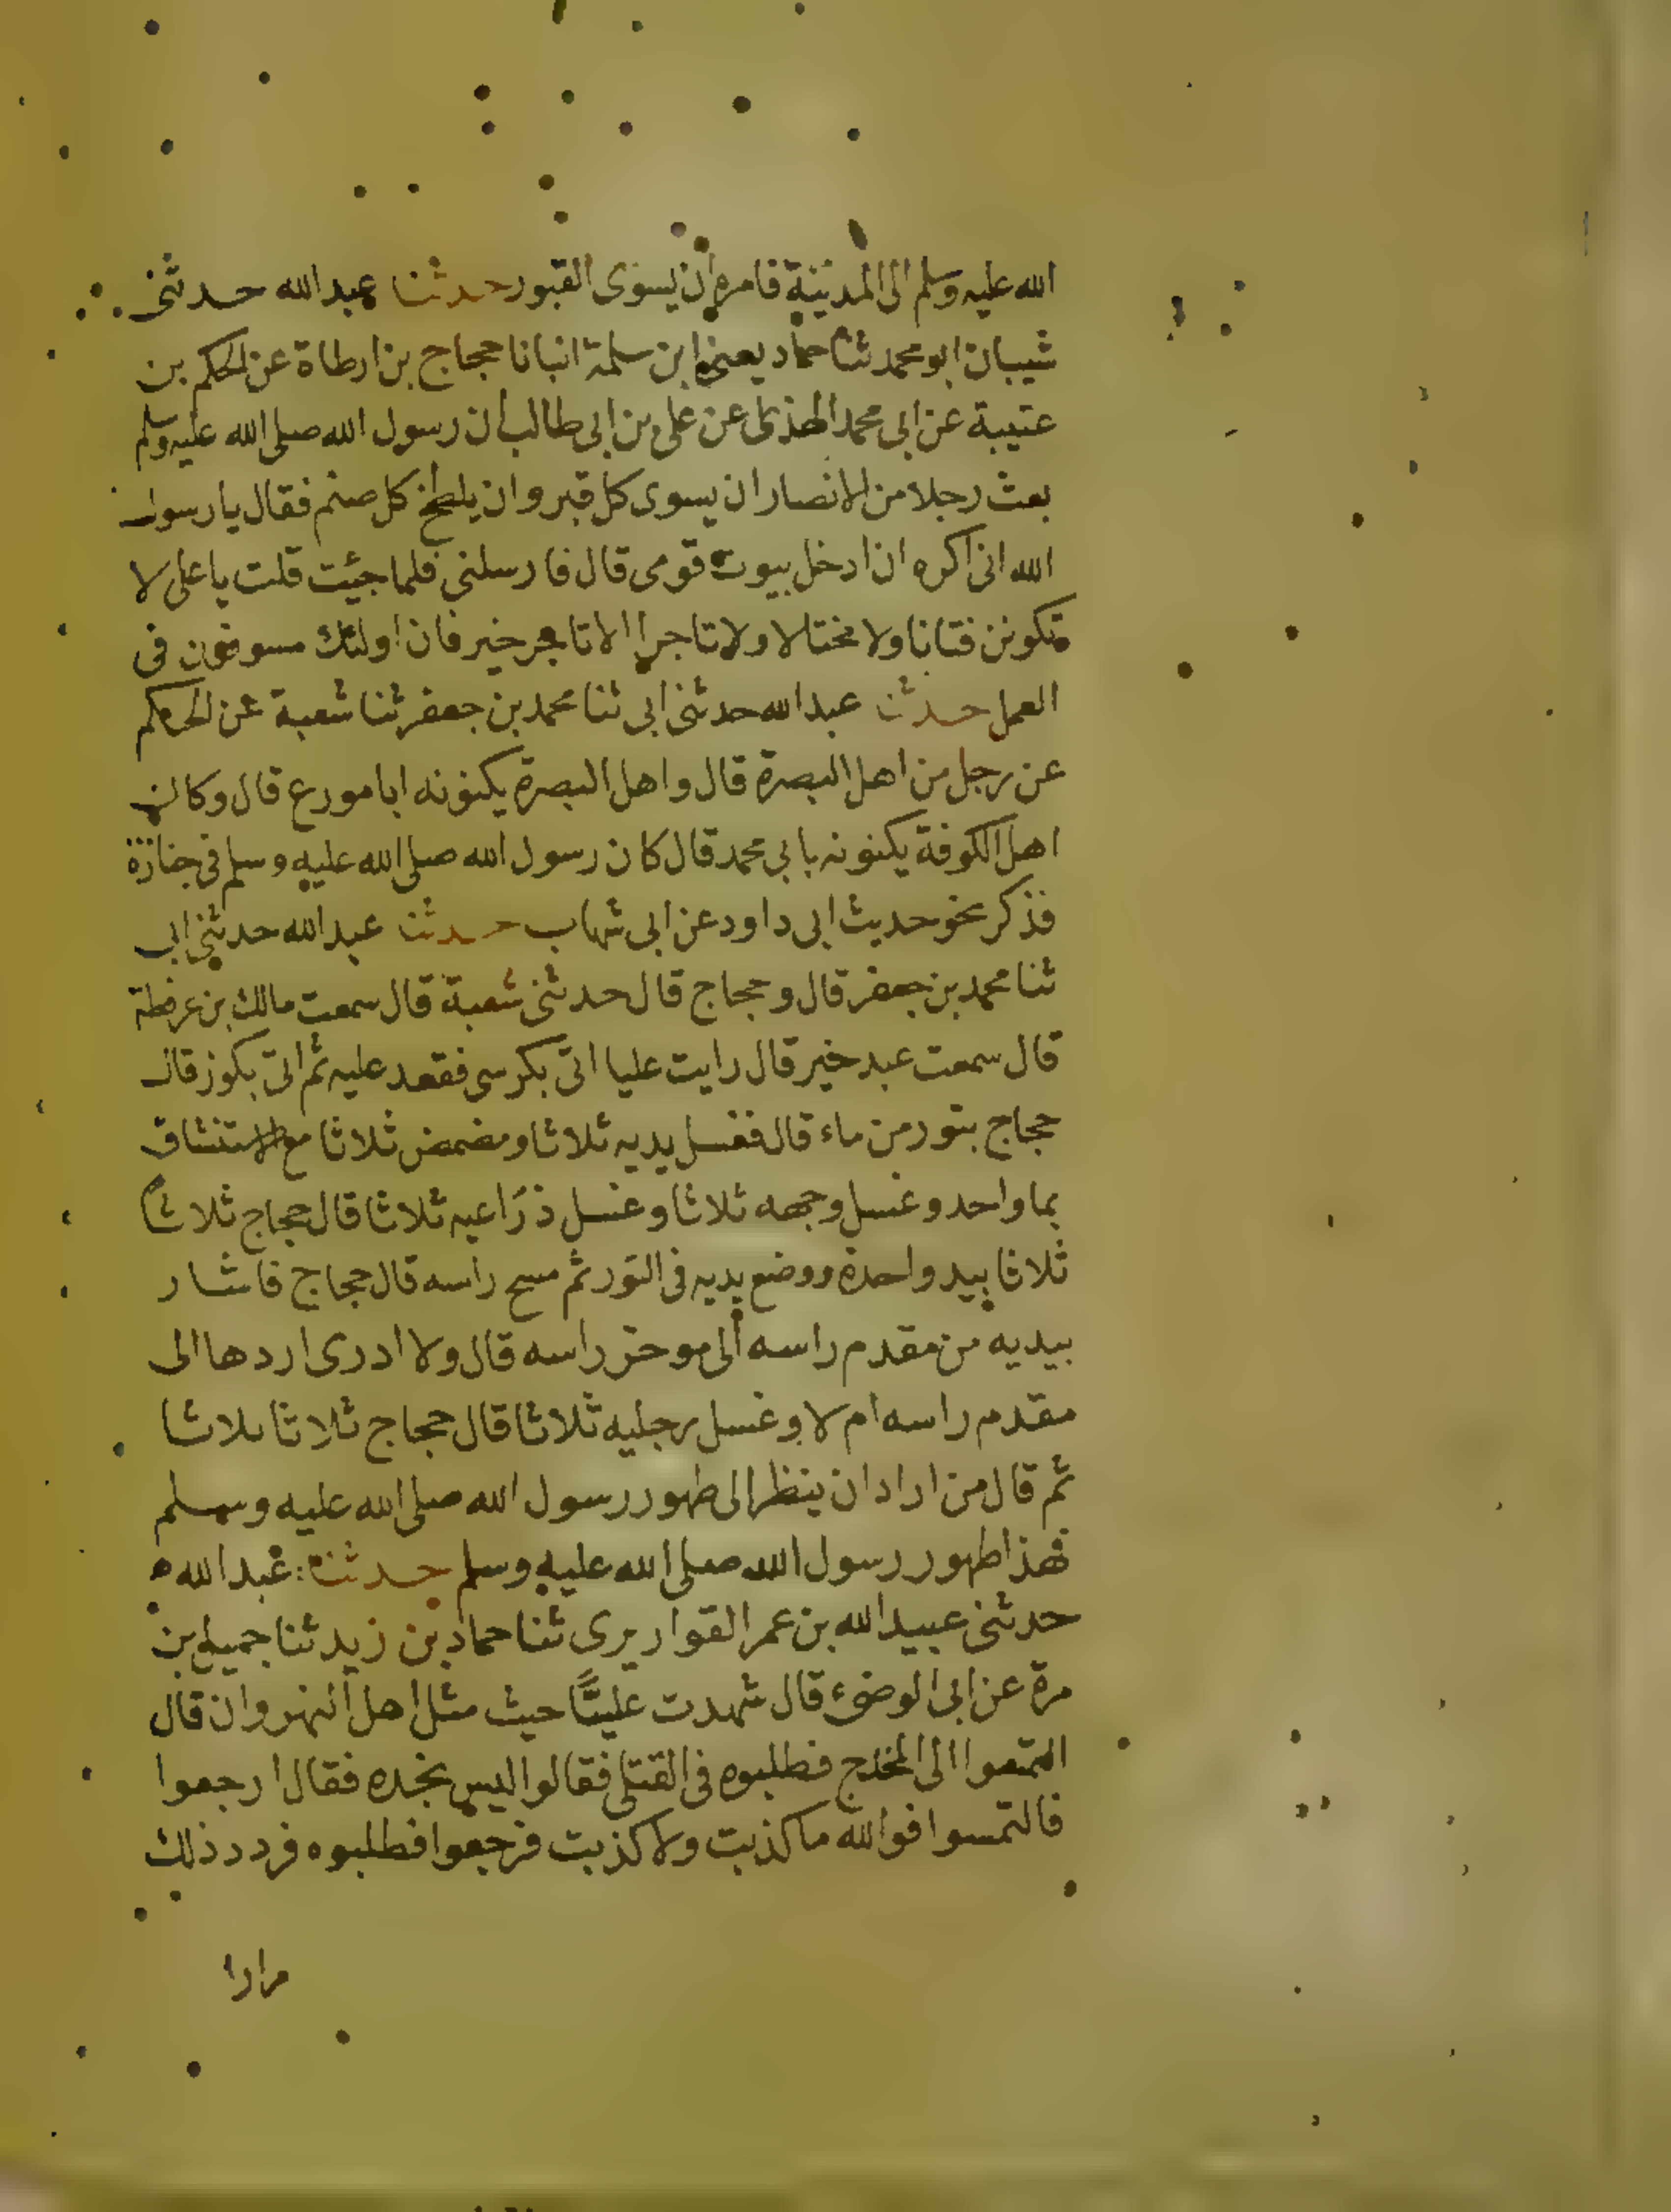 الله عليه وسلم الى المدينة فامره ان يسوى القبور حدثنا عبد الله حدثنى
شيبان ابو محمد ثنا حماد يعنى ابن سلمة انبانا حجاج بن ارطاة عن الحكم بن
عتيبة عن ابى محمد الهذلى عن على بن ابى طالب ان رسول الله صلى الله عليه وسلم
بعث رجلا من الانصار ان يسوى كل قبر وان يلطخ كل صنم فقال يا رسول
الله انى اكره ان ادخل بيوت قومى قال فارسلنى فلما جيئت قلت يا على لا
تكونن فتانا ولا مختالا ولا تاجرا الا تاجر خير فان اولئك مسوفون فى
العمل حدثنا عبد الله حدثنى ابى ثنا محمد بن جعفر ثنا شعبة عن الحكم
عن رجل من اهل البصرة قال واهل البصرة يكنونه ابا مورع قال وكان
اهل الكوفة يكنونه بابى محمد قال كان رسول الله صلى الله عليه وسلم فى جنازة
فذكر نحو حديث ابى داود عن ابى شهاب حدثنا عبد الله حدثنى ابى
ثنا محمد بن جعفر قال وحجاج قال حدثنى شعبة قال سمعت مالك بن عرفطة
قال سمعت عبد خير قال رايت عليا اتى بكرسى فقعد عليه ثم اتى بكوز قال
حجاج بتور من ماء قال فغسل يديه ثلاثا ومضمض ثلاثا مع الاستنشاق
بما واحد وغسل وجهه ثلاثا وغسل ذراعيه ثلاثا قال حجاج ثلاثًا
ثلاثا بيد واحدة ووضع يديه فى التور ثم مسح راسه قال حجاج فاشار
بيديه من مقدم راسه الى موخر راسه قال ولا ادرى اردها الى
مقدم راسه ام لا وغسل رجليه ثلاثا قال حجاج ثلاثا ثلاثا
ثم قال من اراد ان ينظر الى طهور رسول الله صلى الله عليه وسلم
فهذا طهور رسول الله صلى الله عليه وسلم حدثنا عبد الله
حدثنى عبيد الله بن عمر القواريرى ثنا حماد بن زيد ثنا جميل بن
مرة عن ابى الوضىء قال شهدت عليًّا حيث مثل اهل النهروان قال
التمعوا الى المخدج فطلبوه فى القتلى فقالوا ليس نجده فقال ارجعوا
فالتمسوا فوالله ما كذبت ولا كذبت فرجعوا فطلبوه فردد ذلك
مرارا